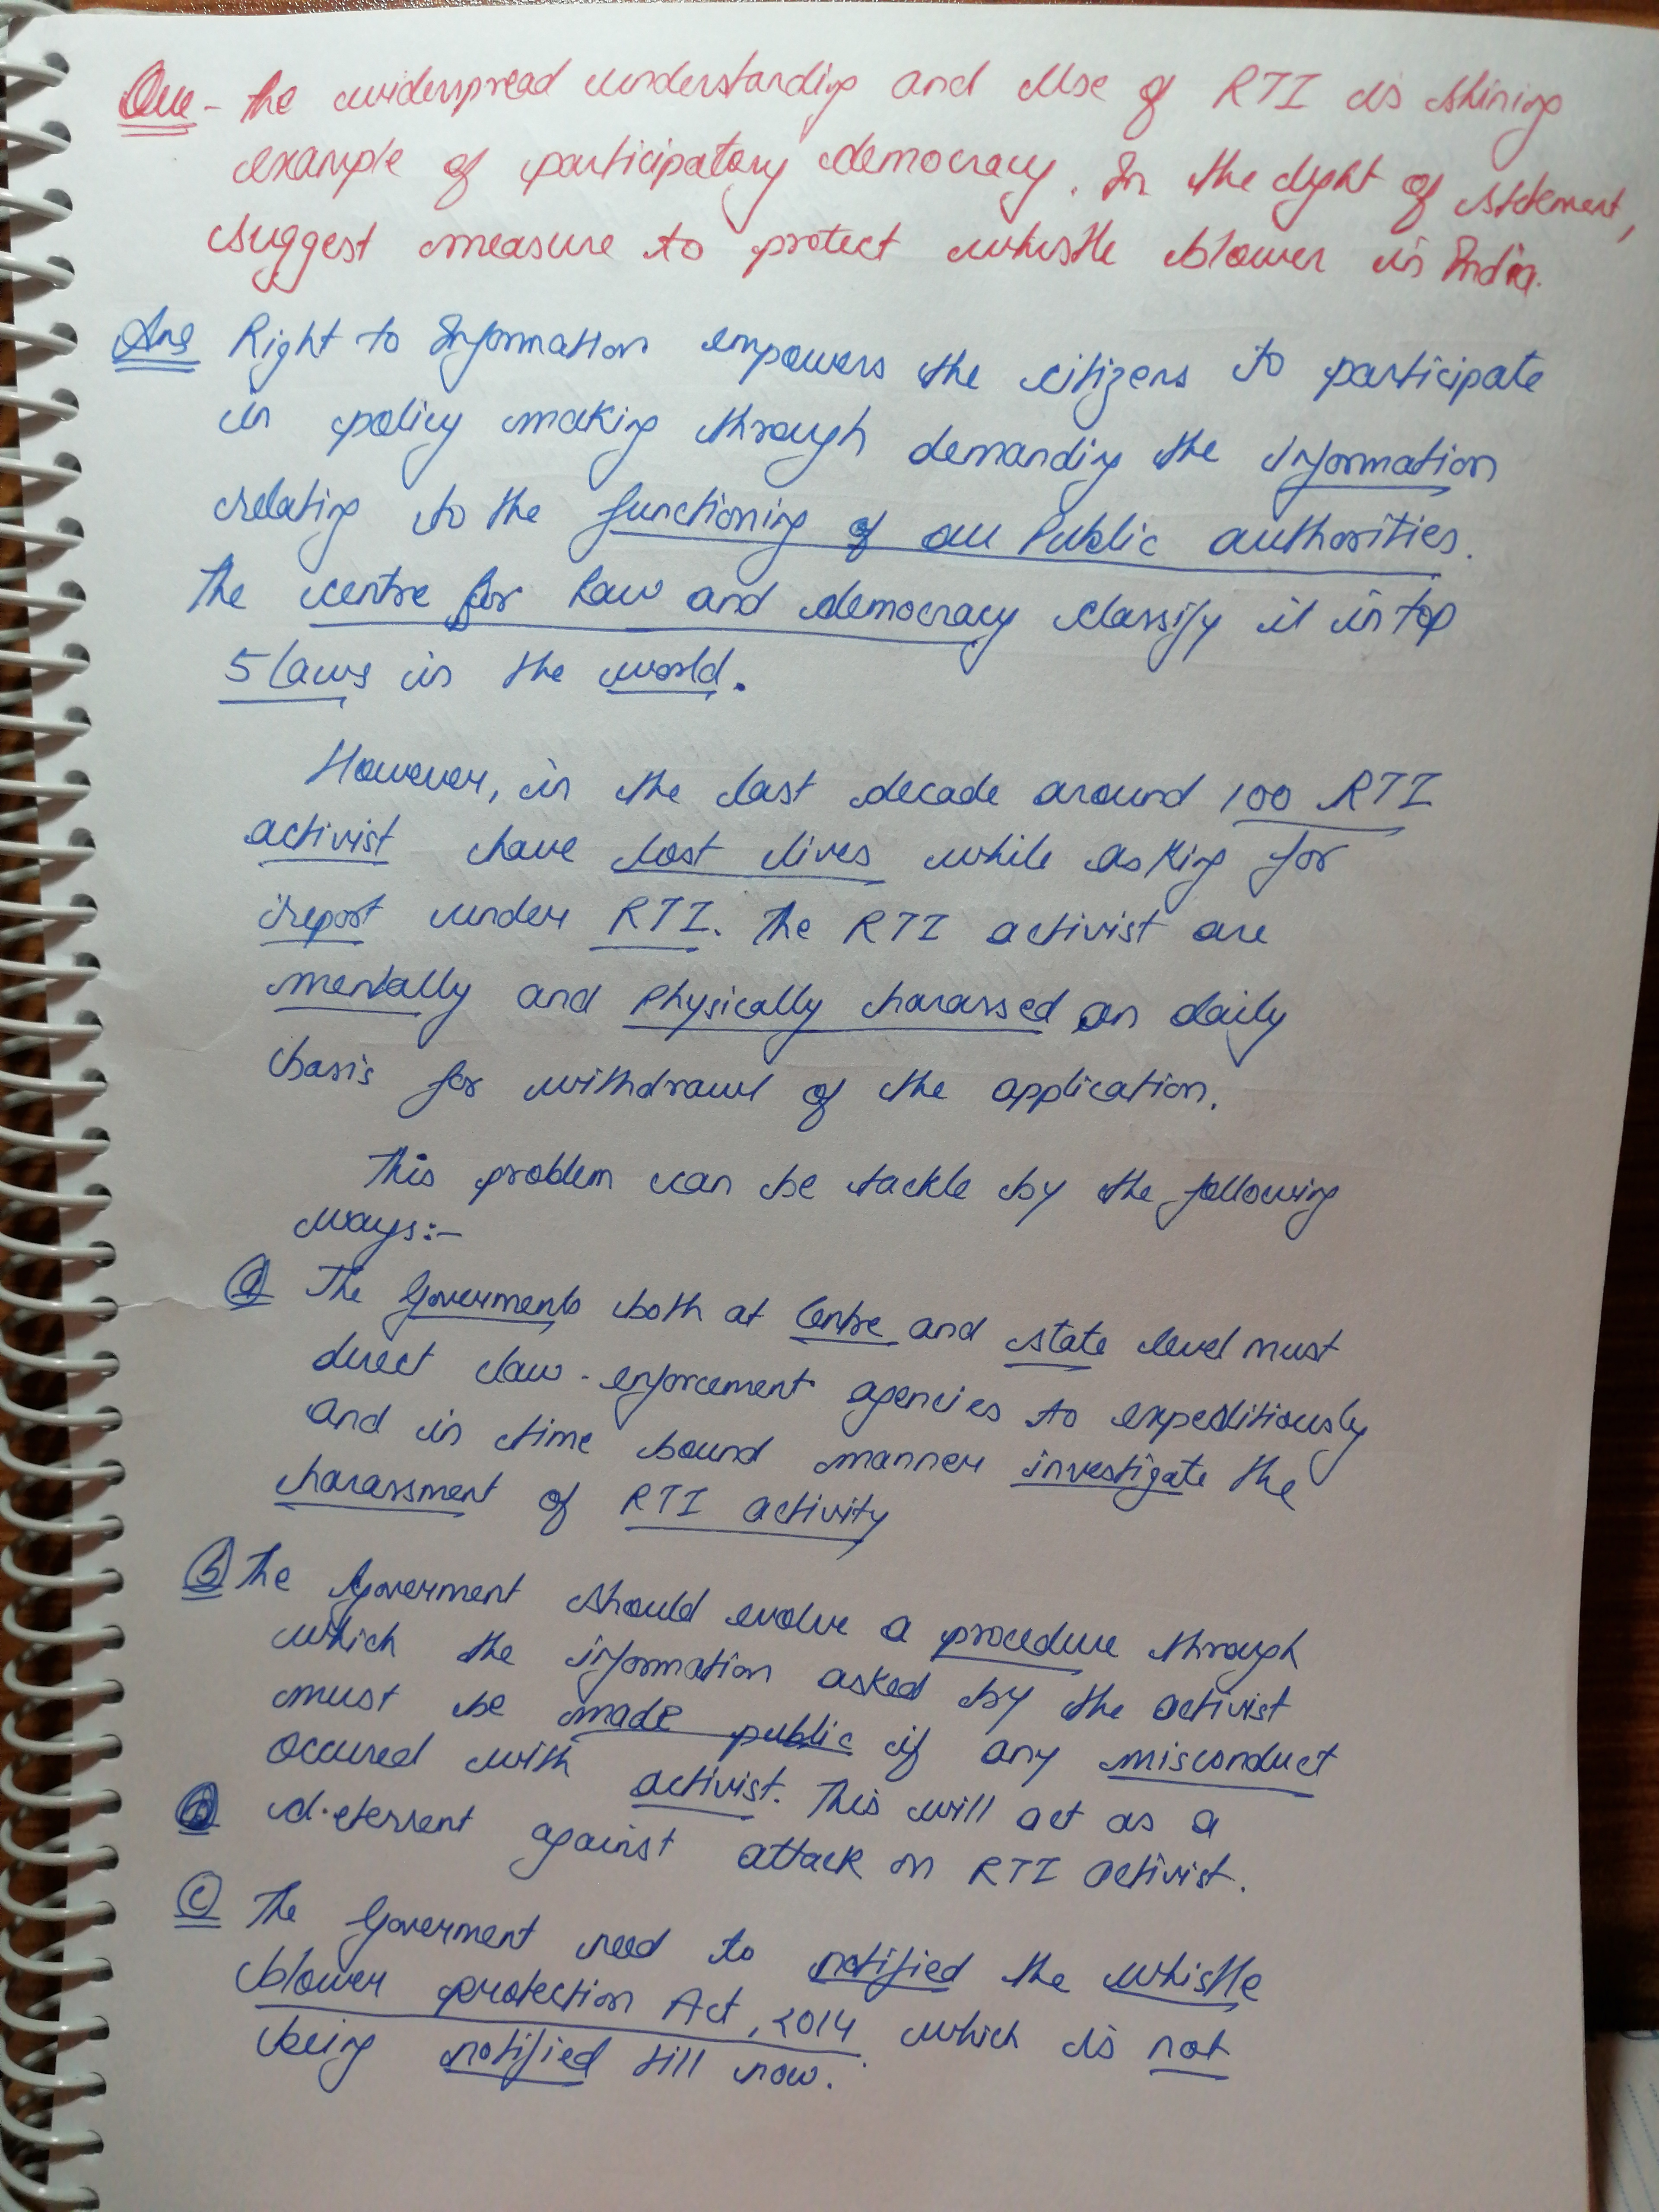 Que - The widerspread understanding and Use of RTI is shining
example of participatory democracy. In the light of statement,
suggest measure to protect whistle blower in India.
Ans Right to Information empowers the citizens to participate
in policy making through demanding the information
relating to the functioning of all Public authorities.
The centre for law and democracy classify it in top
5 laws in the world.
However, in the last decade around 100 RTI
activist have lost lives while asking for
report under RTI. The RTI activist are
mentally and Physically harassed on daily
basis for withdrawl of the application.
This problem can be tackle by the following
ways:-
(a) The Goverments both at Centre and state level must
direct law-enforcement agencies to expeditiously
and in time bound manner investigate the
harassment of RTI activity
(b) The Goverment should evolve a procedure through
which the information asked by the activist
must be made public if any misconduct
occured with activist. This will act as a
deterrent against attack on RTI activist.
(c) The Goverment need to notified the whistle
blower protection Act, 2014 which is not
being notified till now.